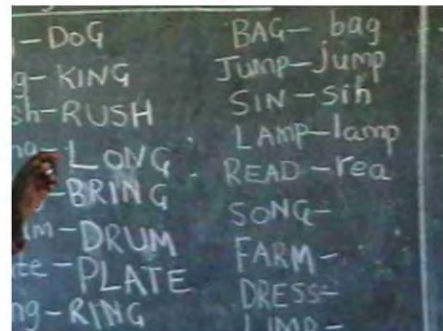 -DOG
g-KING
sh-RUSH
ng-LONG
-BRING
um-DRUM
te-PLATE
ng-RING
BAG- bag
Jump-jump
SIN-sin
LAMP-lamp
READ-rea
SONG-
FARM-
DRESS-
LIMP-